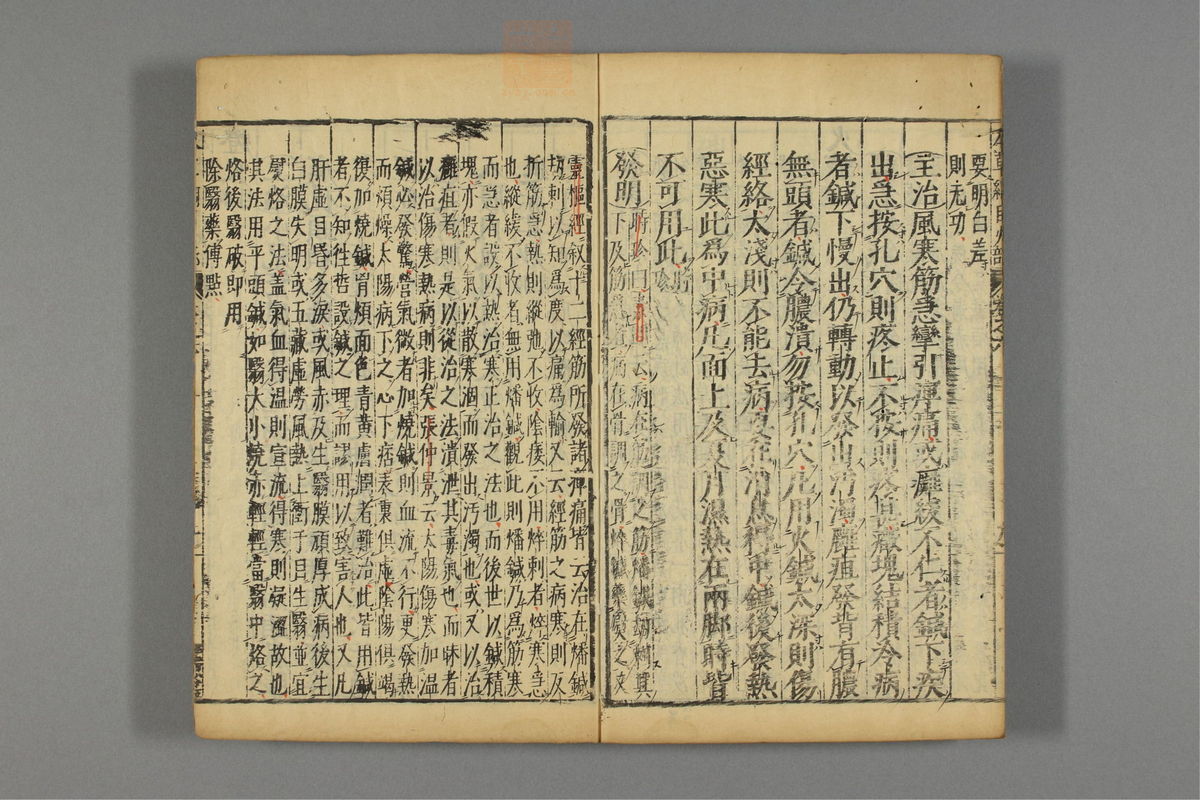 要明白差
則无功
主治風寒筋急攣引痺痛或癱緩不仁者鍼下疾
出急按孔穴則疼止不按則疼甚癥塊結積冷病
者鍼下慢出仍轉動以發出汚濁癰疽發背有膿
無頭者鍼令膿潰勿按孔穴凡用火鍼太深則傷
經絡太淺則不能去病要在消息得中鍼後發熱
惡寒此爲中病凡面上及夏月濕熱在兩脚時皆
不可用此
發明時珍曰素問云病在筋調之筋燔鍼劫刺其
下及筋急者病在骨調之骨焠鍼藥熨之又
靈樞經叙十二經筋所發諸痺痛皆云治在燔鍼
劫刺以知爲度以痛爲輸又云經筋之病寒則反
折筋急熱則縱弛不收陰痿不用焠刺者焠寒急
也縱緩不收者無用燔鍼觀此則燔鍼乃爲筋寒
而急者設以熱治寒正治之法也而後世以鍼積
塊亦假火氣以散寒涸而發出汚濁也或又以治
癰疽者則是以從治之法潰泄其毒氣也而昧者
以治傷寒熱病則非矣張仲景云太陽傷寒加温
鍼必發驚營氣微者加燒鍼則血流不行更發熱
而煩燥太陽病下之心下痞表裏俱虛陰陽俱竭
復加燒鍼胷煩面色青黄膚潤者難治此皆用鍼
者不知往哲設鍼之理而謬用以致害人也又凡
肝虛目昏多淚或風赤及生翳膜頑厚成病後生
白膜失明或五藏虛勞風熱上衝于目生翳並宜
熨烙之法葢氣血得温則宣流得寒則凝澀故也
其法用平頭鍼如翳大小燒赤輕輕當翳中烙之
烙後翳破即用
除翳藥傅點